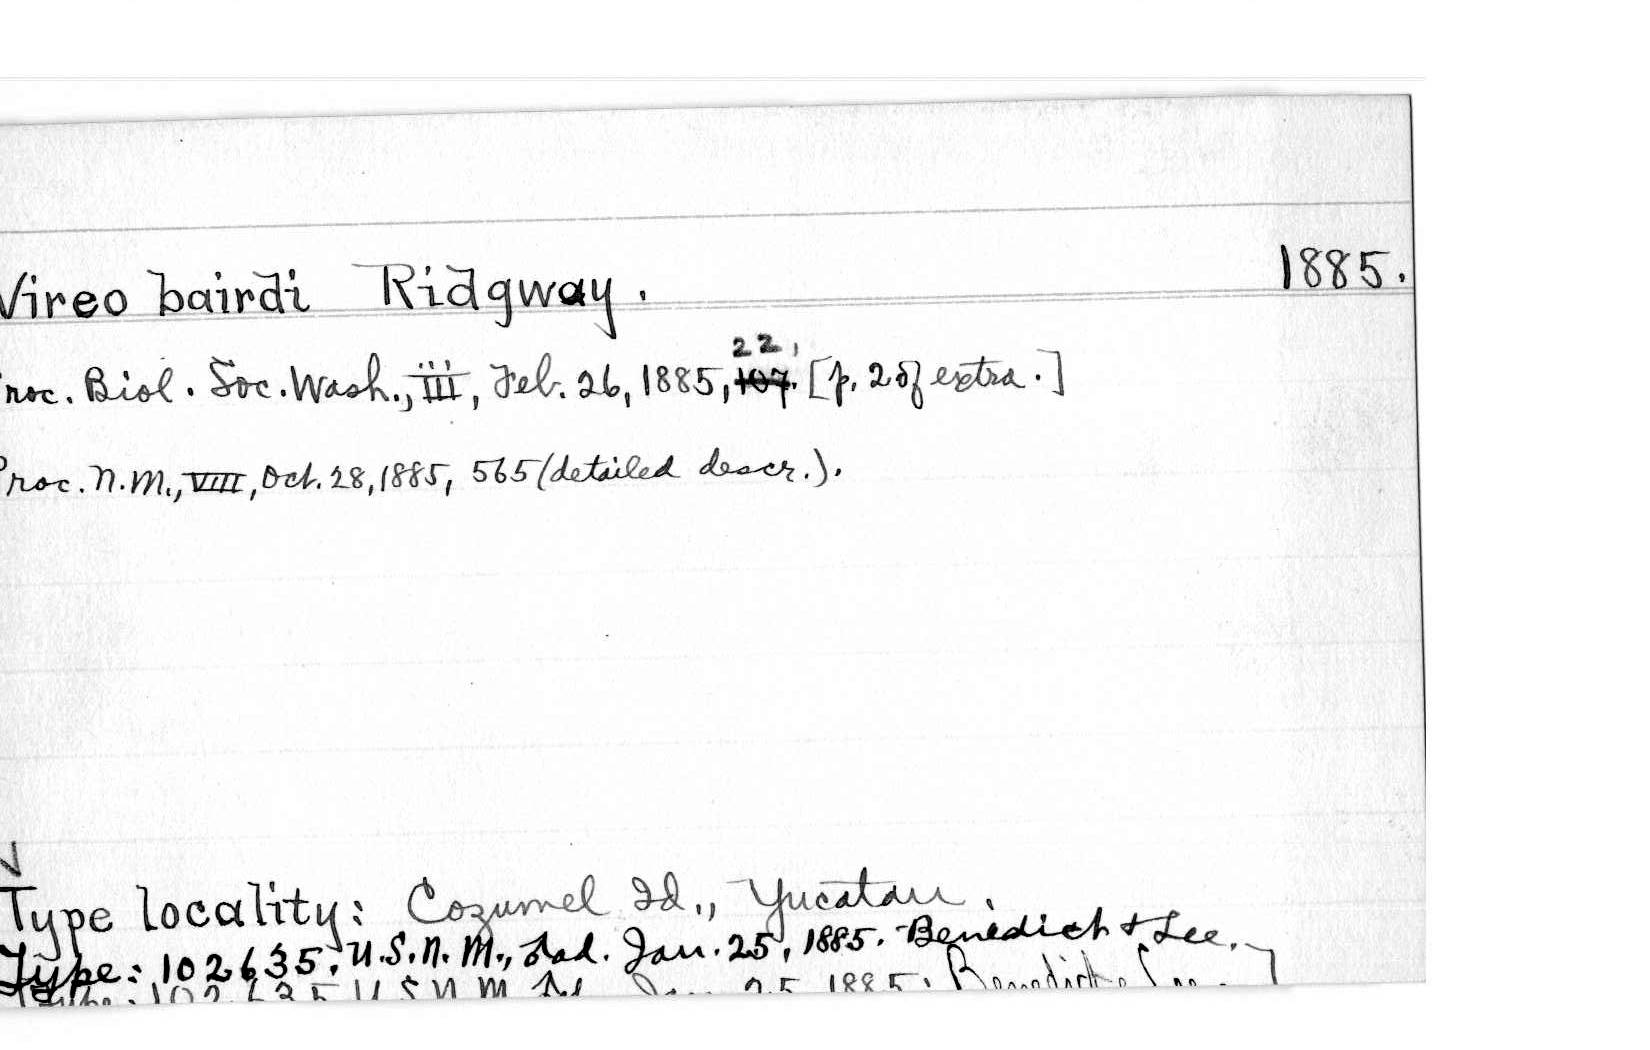 Vireo bairdi Ridgway. 1885.
22,
roc. Biol. Soc. Wash., III, Feb. 26, 1885, 107. [p. 2 of extra.]
Proc. N.M., VIII, Oct. 28, 1885, 565 (detailed descr.).
Type locality: Cozumel Id., Yucatan.
Type: 102635, U.S.N.M., ♂ad. Jan. 25, 1885. Benedict & Lee.
102635 U S N M Jan 25 1885. Benedict Lee. ]